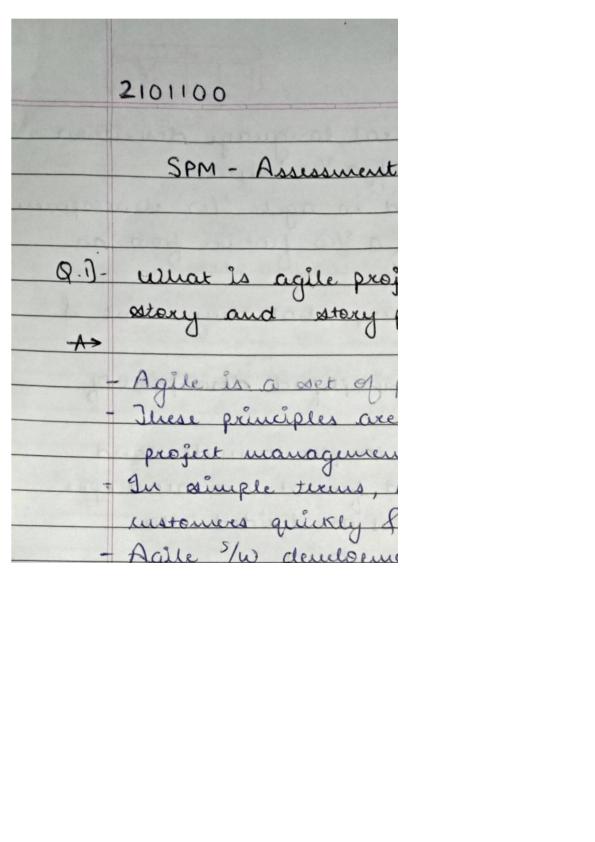 2101100
SPM - Assessment
Q.1)- What is agile proj
story and story p
A→
- Agile is a set of p
- These principles are
project managemen
- In simple terms,
customers quickly &
- Agile s/w developme